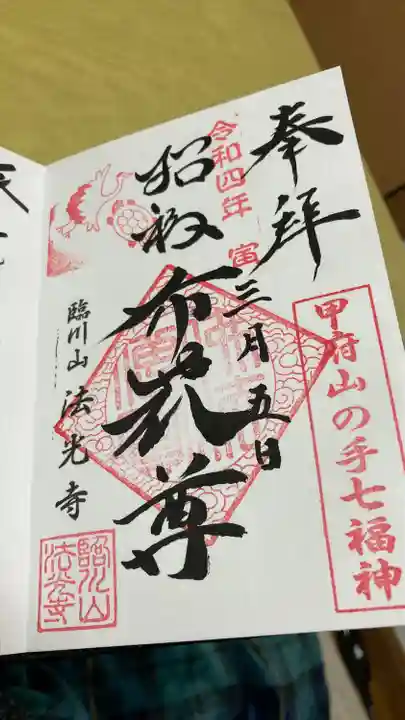 奉拝
甲府山の手七福神
令和四年 寅 三月五日
招福 布袋尊
臨川山 法光寺
臨川山
法光寺